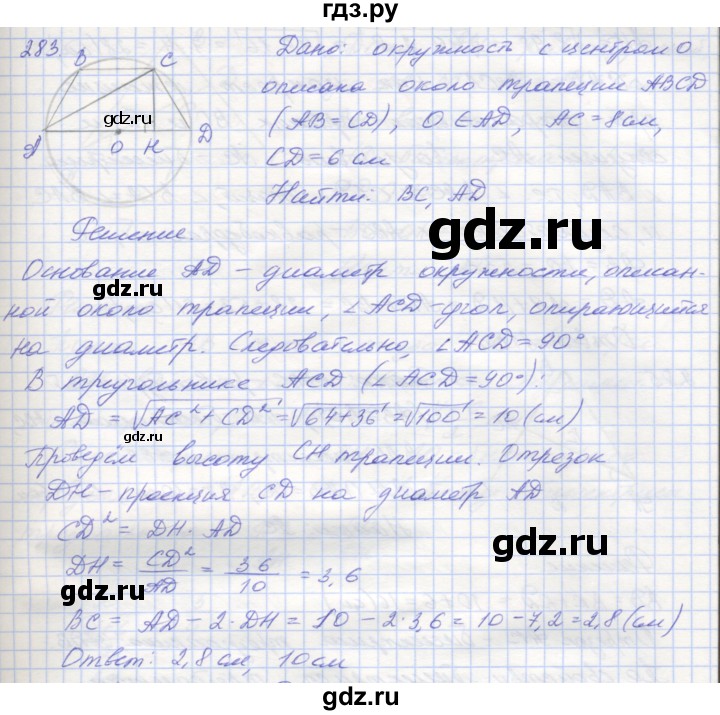 гдз.ру
283.
B C
A O H D
gdz.ru
gdz.ru
Дано: окружность с центром O
описана около трапеции ABCD
(AB=CD), O∈AD, AC=8см,
CD=6см
Найти: BC, AD
gdz.ru
Решение.
Основание AD – диаметр окружности, описан-
ной около трапеции, ∠ACD-угол, опирающийся
на диаметр. Следовательно, ∠ACD=90°
В треугольнике ACD (∠ACD=90°):
AD = √AC²+CD² = √64+36 = √100 = 10(см)
Проведём высоту CH трапеции. Отрезок
DH-проекция CD на диаметр AD
CD² = DH·AD
gdz.ru
DH = CD²/AD = 36/10 = 3,6
BC = AD – 2·DH = 10 – 2·3,6 = 10 – 7,2 = 2,8(см)
Ответ: 2,8см, 10см
gdz.ru
gdz.ru